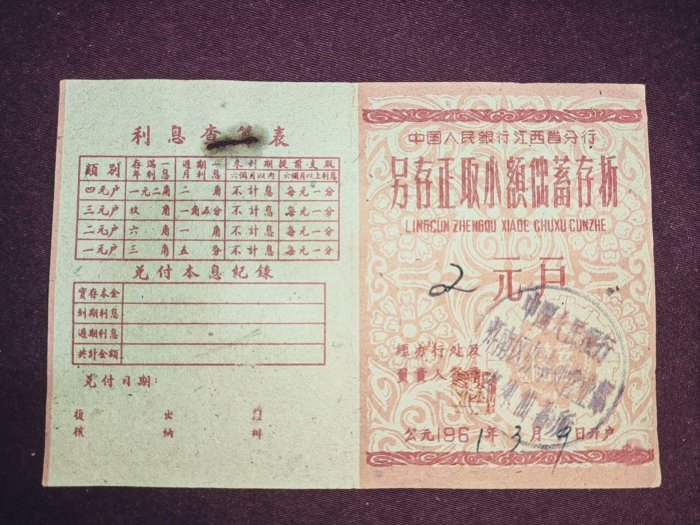 利息查算表
類別 存滿一年利息 過期一月利息 未到期提前支取 六個月以內 六個月以上利息
四元户 一元二角 二角 不計息 每元一分
三元户 玖角 一角五分 不計息 每元一分
二元户 六角 一角 不計息 每元一分
一元户 三角 五分 不計息 每元一分
兑付本息紀錄
實存本金
到期利息
過期利息
共計金額
兑付日期:
復核 出納
中國人民銀行江西省分行
另存正取小額儲蓄存折
LINGCUN ZHENGQU XIAOE CHUXU CUNZHE
2 元戶
經办行处及
負責人
公元1961年3月9日开户
中国人民銀行